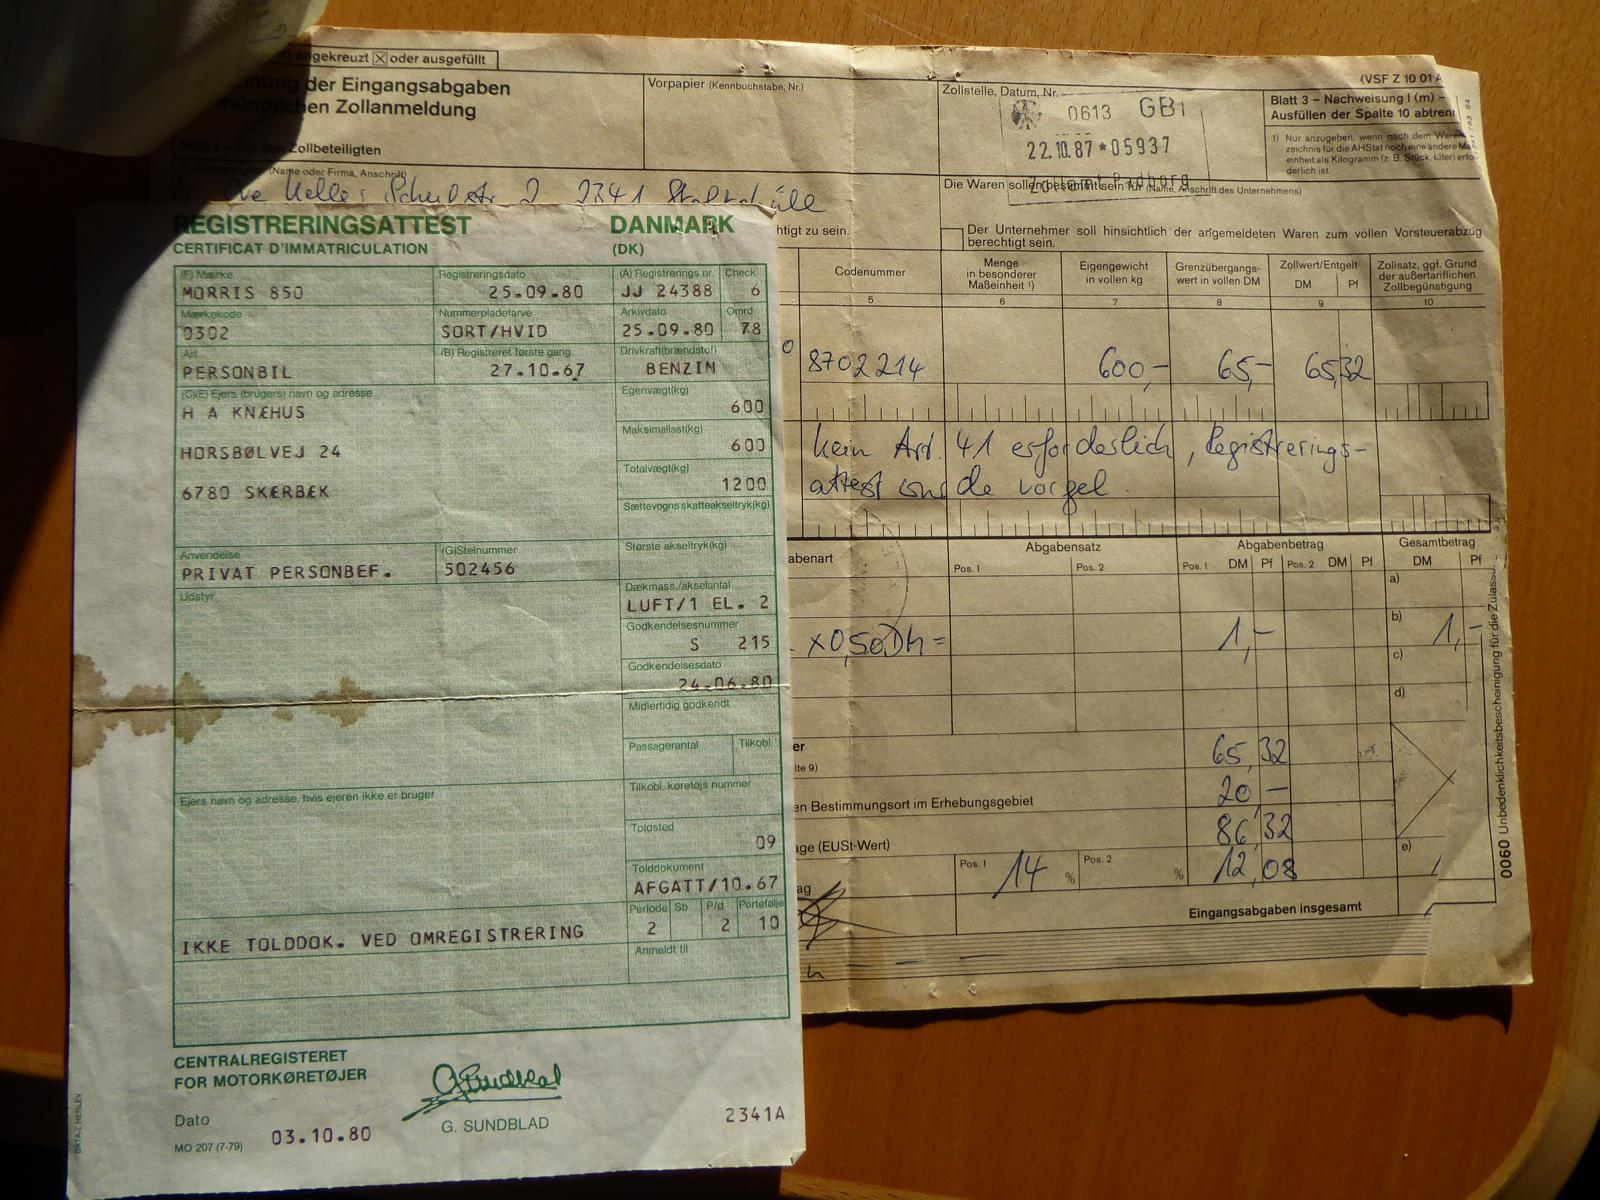 angekreuzt ☒ oder ausgefüllt
nung der Eingangsabgaben
mündlichen Zollanmeldung
Blatt 1 – Für den Zollbeteiligten
Vorpapier (Kennbuchstabe, Nr.)
Zollstelle, Datum, Nr.
0613 GB1
22.10.87*05937
Zollamt Padborg
(VSF Z 10 01
Blatt 3 – Nachweisung I (m) –
Ausfüllen der Spalte 10 abtren
1) Nur anzugeben, wenn nach dem Waren
zeichnis für die AHStat noch eine andere Ma
einheit als Kilogramm (z. B. Stück, Liter) erfo
derlich ist.
(Name oder Firma, Anschrift)
2 2341
Die Waren sollen bestimmt sein für (Name, Anschrift des Unternehmens)
htigt zu sein.
Der Unternehmer soll hinsichtlich der angemeldeten Waren zum vollen Vorsteuerabzug
berechtigt sein.
Codenummer
Menge
in besonderer
Maßeinheit ¹)
Eigengewicht
in vollen kg
Grenzübergangs-
wert in vollen DM
Zollwert/Entgelt
DM Pf
Zollsatz, ggf. Grund
der außertariflichen
Zollbegünstigung
5 6 7 8 9 10
0 8702214 600,- 65,- 65,32
kein Art. 41 erforderlich, Registrerings-
attest wurde vorgel.
abenart
Abgabensatz
Abgabenbetrag
Gesamtbetrag
Pos. 1 Pos. 2 Pos. 1 DM Pf Pos. 2 DM Pf DM Pf
a)
b)
x0,50DM = 1,- 1,-
c)
d)
er 65,32
lte 9)
20 -
en Bestimmungsort im Erhebungsgebiet
86,32
age (EUSt-Wert)
e)
ag Pos. 1 14 % Pos. 2 % 12,08
Eingangsabgaben insgesamt
0060 Unbedenklichkeitsbescheinigung für die Zulass
REGISTRERINGSATTEST DANMARK
CERTIFICAT D'IMMATRICULATION (DK)
(F) Mærke Registreringsdato (A) Registrerings nr. Check
MORRIS 850 25.09.80 JJ 24388 6
Mærkekode Nummerpladefarve Arkivdato Omrd
0302 SORT/HVID 25.09.80 78
Art (B) Registreret første gang Drivkraft(brændstof)
PERSONBIL 27.10.67 BENZIN
(C)(E) Ejers (brugers) navn og adresse Egenvægt(kg)
H A KNÆHUS 600
Maksimallast(kg)
HORSBØLVEJ 24 600
Totalvægt(kg)
6780 SKÆRBÆK 1200
Sættevogns skatteakseltryk(kg)
Anvendelse (G)Stelnummer Største akseltryk(kg)
PRIVAT PERSONBEF. 502456
Udstyr Dækmass./akselantal
LUFT/1 EL. 2
Godkendelsesnummer
S 215
Godkendelsesdato
24.06.80
Midlertidig godkendt
Passagerantal Tilkobl.
Ejers navn og adresse, hvis ejeren ikke er bruger Tilkobl. køretøjs nummer
Toldsted
09
Tolddokument
AFGATT/10.67
Periode Sb P/d Portefølje
2 2 10
IKKE TOLDDOK. VED OMREGISTRERING
Anmeldt til
CENTRALREGISTERET
FOR MOTORKØRETØJER
G. SUNDBLAD
2341A
Dato 03.10.80
MO 207 (7-79)
DATA-Z HERLEV